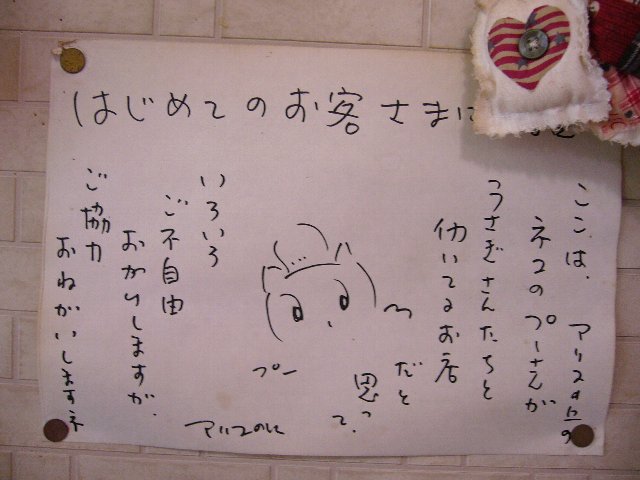 はじめてのお客さまに
ここは、アリスの丘の
ネコのプーさんが
うさぎさんたちと
働いてるお店
だと
思って、
いろいろ
ご不自由
おかけしますが、
ご協力
おねがいしますネ
プー